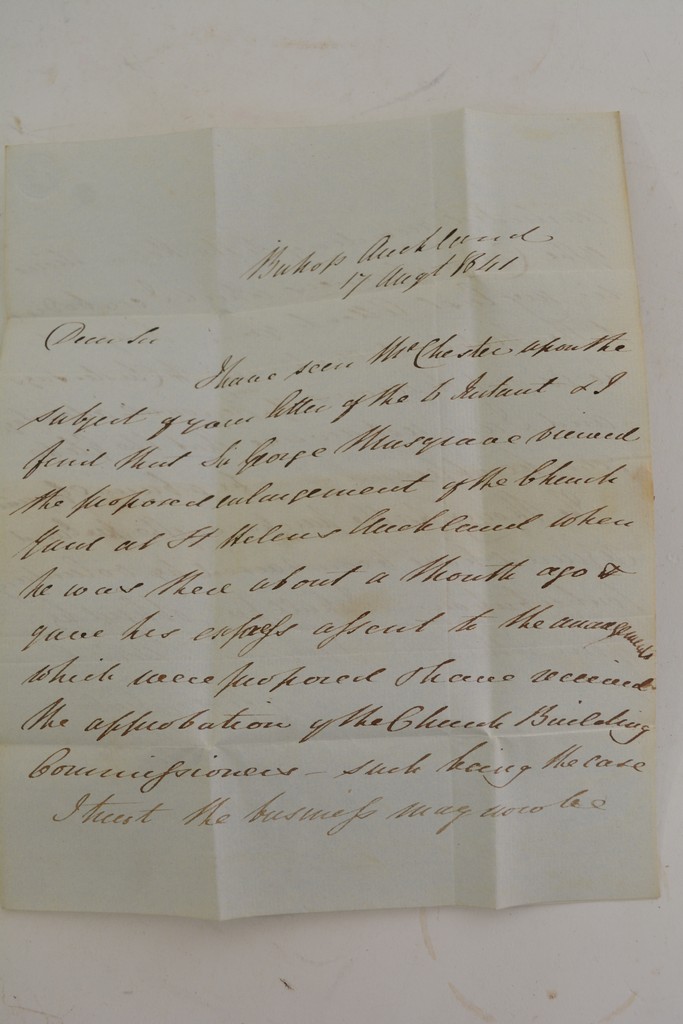 Bishop Auckland
17 Augt 1841
Dear Sir
I have seen Mr Chester upon the
subject of your letter of the 6 Instant & I
find that Sir George Musgrave viewed
the proposed enlargement of the Church
Yard at St Helens Auckland when
he was there about a Month ago &
gave his express assent to the arrangements
which were proposed & have received
the approbation of the Church Building
Commissioners – such being the case
I trust the business may now be